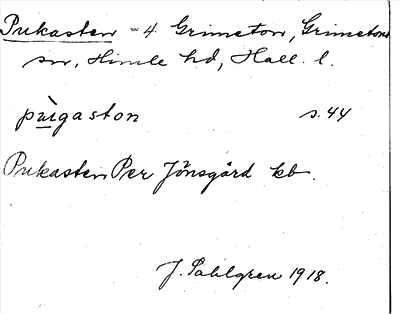 Pukasten = 4 Grimeton, Grimetons
sn, Himle hd, Hall. l.
pùigaston s. 44
Pukasten Per Jönsgård kb.
J. Sahlgren 1918.